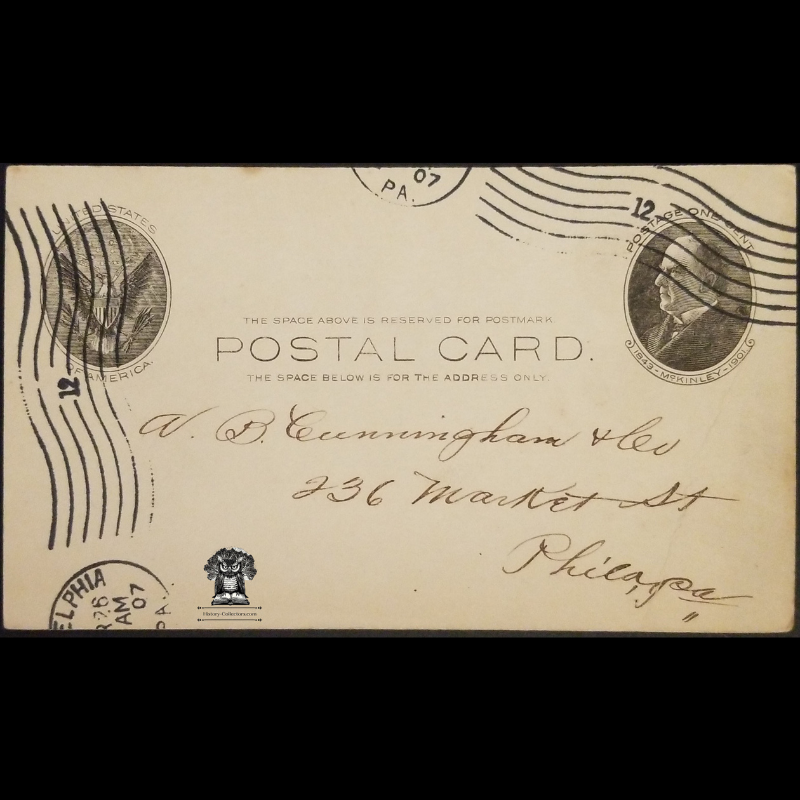 07
PA.
12
UNITED STATES
OF AMERICA.
POSTAGE ONE CENT
1843-McKINLEY-1901
THE SPACE ABOVE IS RESERVED FOR POSTMARK
POSTAL CARD.
THE SPACE BELOW IS FOR THE ADDRESS ONLY.
12
W. B. Cunningham & Co
236 Market St
Phila, Pa
ELPHIA
26
AM
07
PA.
History-Collectors.com